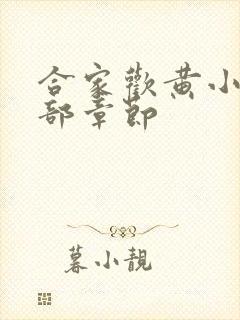 合家歡黄小
部章節
暮小靚